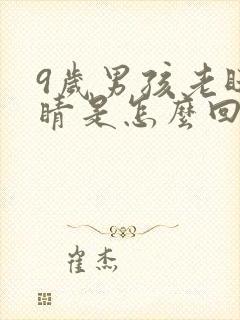 9歲男孩老眨
睛是怎麼回
崔杰